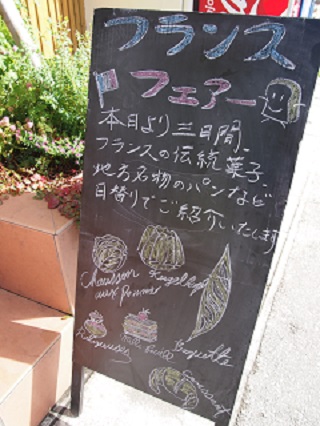 フランス
フェアー
本日より三日間、
フランスの伝統菓子、
地方名物のパンなど
日替りでご紹介いたします
Chausson
aux Pommes
Kugelhopf
Baguette